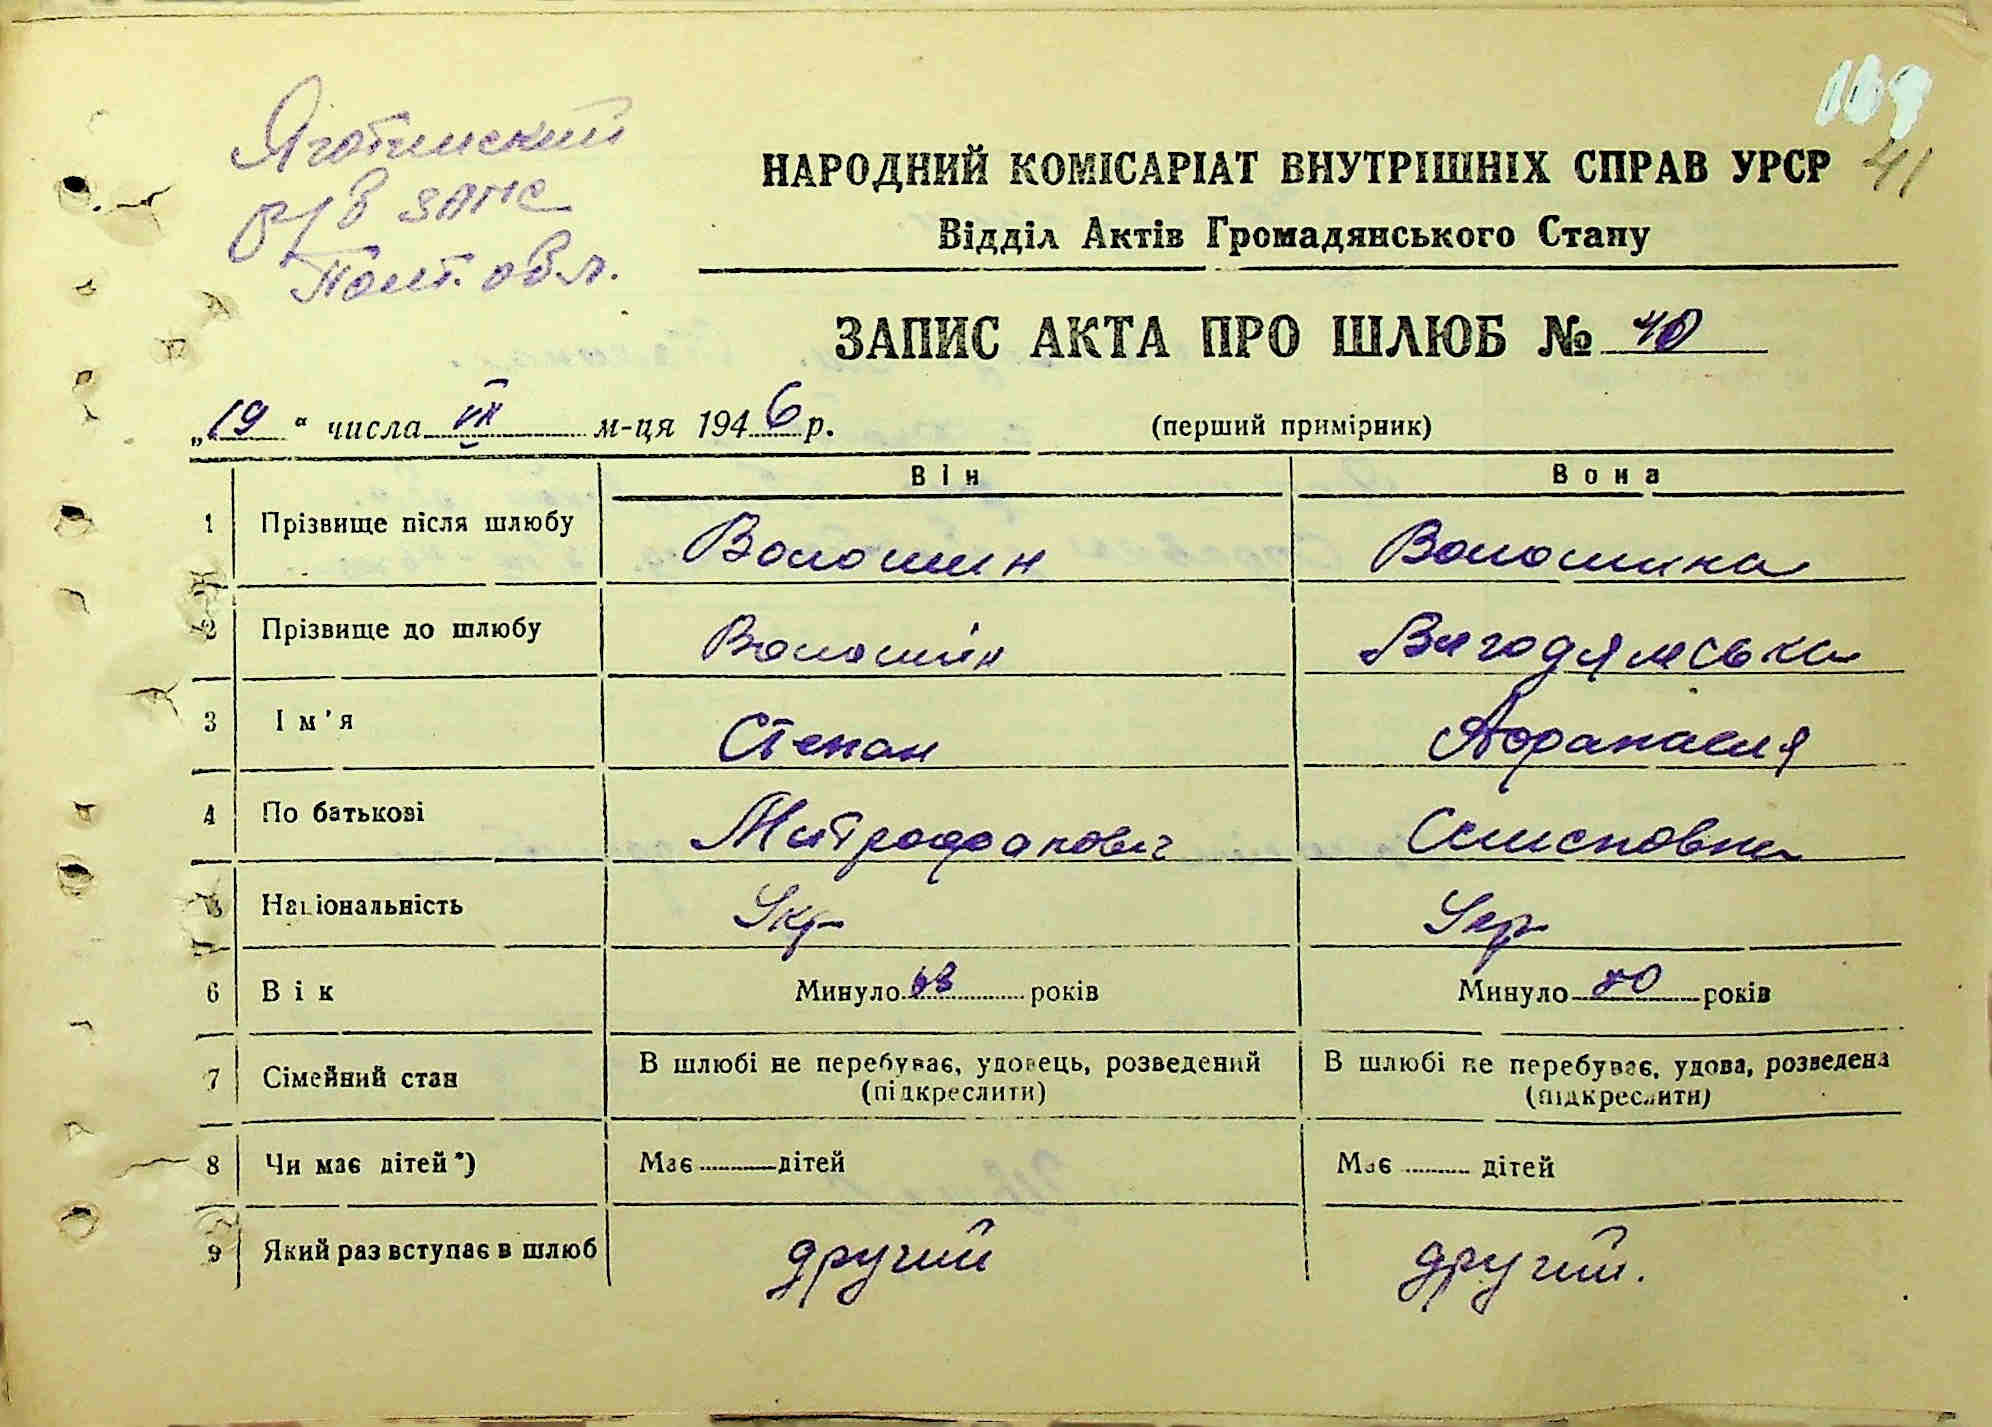 Яготинский
р/в загс
Полт. обл.
169
41
НАРОДНИЙ КОМІСАРІАТ ВНУТРІШНІХ СПРАВ УРСР
Відділ Актів Громадянського Стану
ЗАПИС АКТА ПРО ШЛЮБ № 40
„19“ числа VII м-ця 1946 р. (перший примірник)
Він Вона
1 Прізвище після шлюбу Волошин Волошина
2 Прізвище до шлюбу Волошін Вигодянська
3 Ім'я Степан Афранасия
4 По батькові Митрофанович
5 Національність Укр Укр
6 Вік Минуло років Минуло років
7 Сімейний стан В шлюбі не перебуває, удовець, розведений В шлюбі не перебуває, удова, розведена
(підкреслити) (підкреслити)
8 Чи має дітей*) Має дітей Має дітей
9 Який раз вступає в шлюб другий другий.